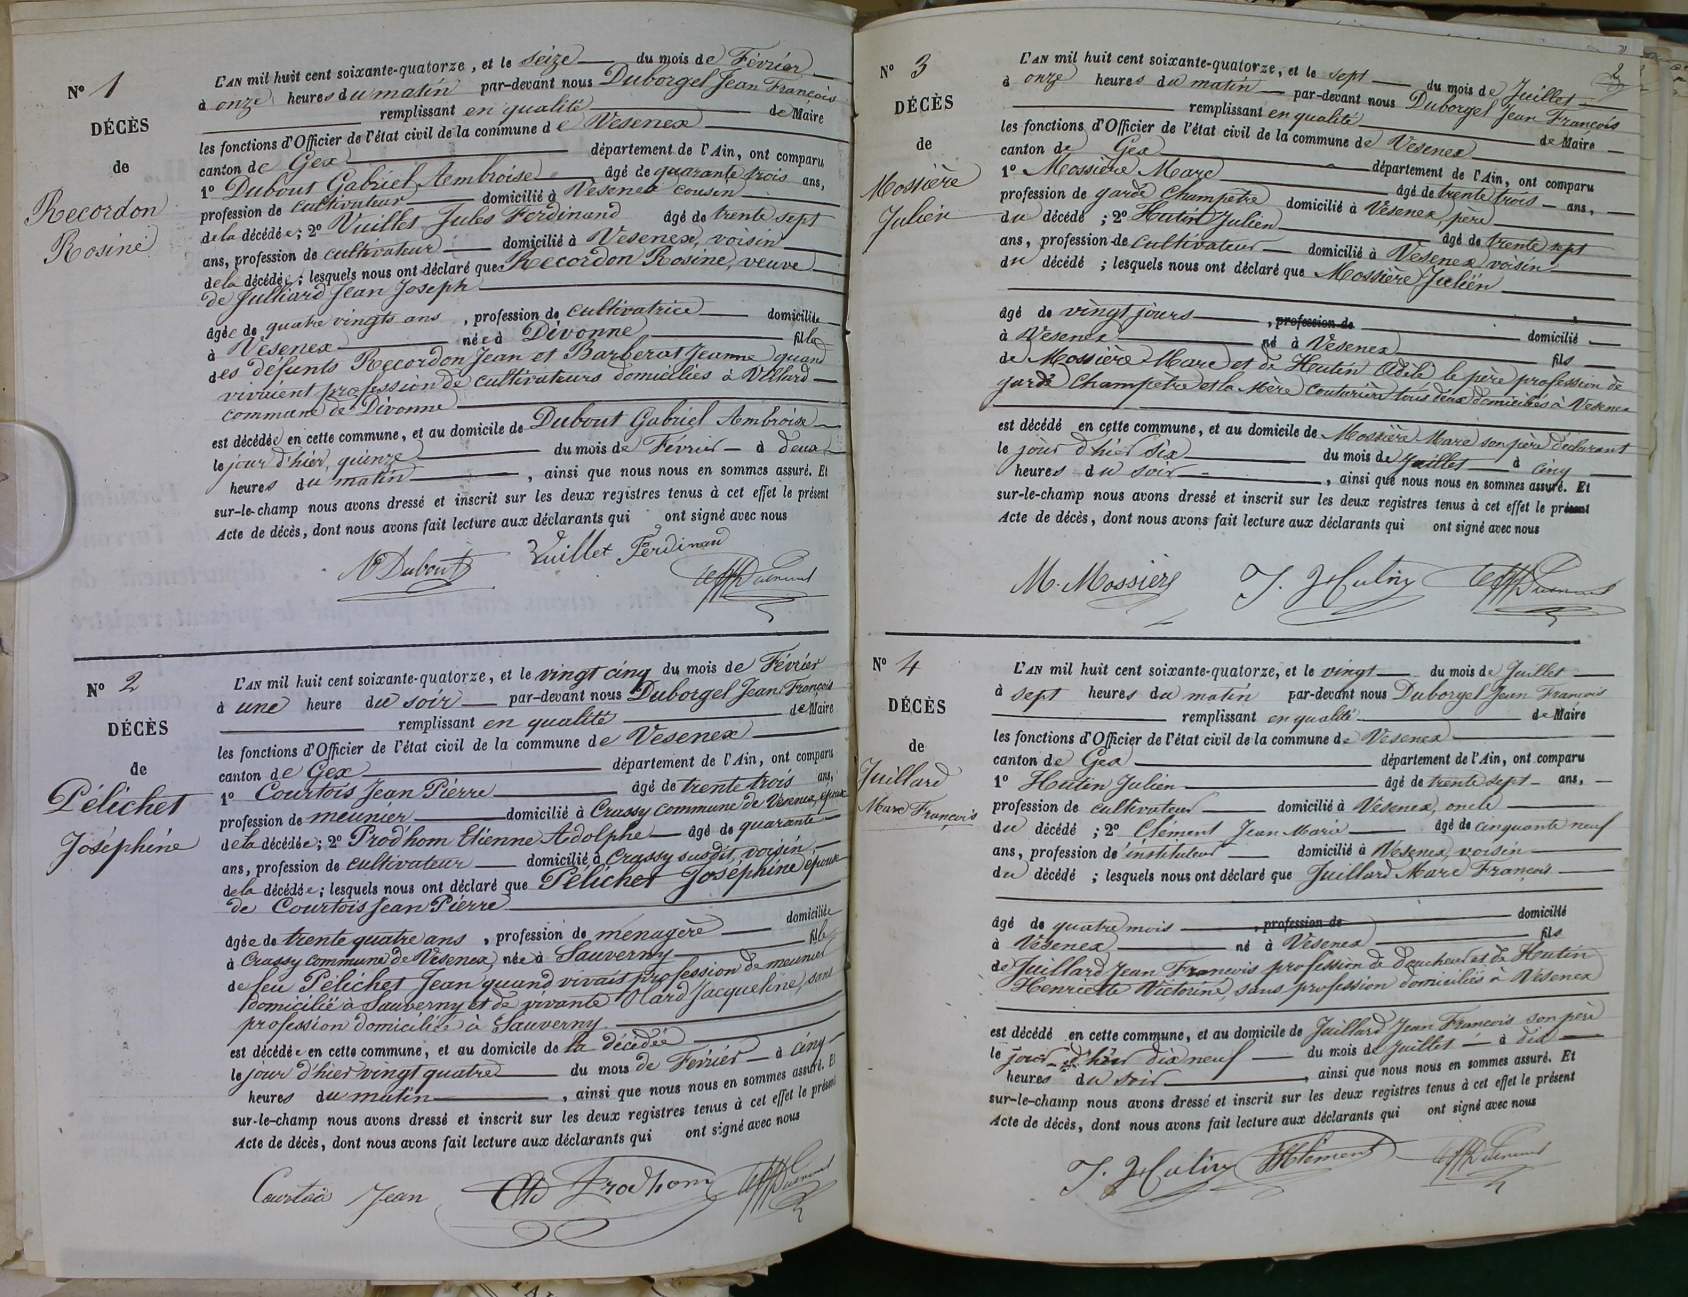 N° 1
DÉCÈS
de
Recordon
Rosine
L'AN mil huit cent soixante-quatorze, et le seize du mois de Février
à onze heures du matin par-devant nous Duborgel Jean François
remplissant en qualité de Maire
les fonctions d'Officier de l'état civil de la commune de Vesenex
canton de Gex département de l'Ain, ont comparu
1° Dubout Gabriel Ambroise âgé de quarante trois ans,
profession de cultivateur domicilié à Vesenex cousin
de la décédée; 2° Vuillet Jules Ferdinand âgé de trente sept
ans, profession de cultivateur domicilié à Vesenex, voisin
de la décédée; lesquels nous ont déclaré que Recordon Rosine, veuve
de Julliard Jean Joseph
âgée de quatre vingts ans, profession de cultivatrice domiciliée
à Vesenex née à Divonne fille
des défunts Recordon Jean et Barberat Jeanne quand
vivaient profession de cultivateurs domiciliés à Villard
commune de Divonne
est décédée en cette commune, et au domicile de Dubout Gabriel Ambroise
le jour d'hier, quinze du mois de Février à deux
heures du matin, ainsi que nous nous en sommes assuré. Et
sur-le-champ nous avons dressé et inscrit sur les deux registres tenus à cet effet le présent
Acte de décès, dont nous avons fait lecture aux déclarants qui ont signé avec nous
Dubout Vuillet Ferdinand
N° 2
DÉCÈS
de
Pélichet
Joséphine
L'AN mil huit cent soixante-quatorze, et le vingt cinq du mois de Février
à une heure du soir par-devant nous Duborgel Jean François
remplissant en qualité de Maire
les fonctions d'Officier de l'état civil de la commune de Vesenex
canton de Gex département de l'Ain, ont comparu
1° Courtois Jean Pierre âgé de trente trois ans,
profession de meunier domicilié à Crassy commune de Vesenex, époux
de la décédée; 2° Prodhom Etienne Adolphe âgé de quarante
ans, profession de cultivateur domicilié à Crassy susdit, voisin
de la décédée; lesquels nous ont déclaré que Pélichet Joséphine épouse
de Courtois Jean Pierre
âgée de trente quatre ans, profession de ménagère domiciliée
à Crassy commune de Vesenex, née à Sauverny fille
de feu Pélichet Jean quand vivait profession de meunier
domicilié à Sauverny et de vivante Olard Jacqueline, sans
profession domiciliée à Sauverny
est décédée en cette commune, et au domicile de la décédée
le jour d'hier vingt quatre du mois de Février à cinq
heures du matin, ainsi que nous nous en sommes assuré. Et
sur-le-champ nous avons dressé et inscrit sur les deux registres tenus à cet effet le présent
Acte de décès, dont nous avons fait lecture aux déclarants qui ont signé avec nous
Courtois Jean Prodhom
N° 3
DÉCÈS
de
Mossière
Julien
L'AN mil huit cent soixante-quatorze, et le sept du mois de Juillet
à onze heures du matin par-devant nous Duborgel Jean François
remplissant en qualité de Maire
les fonctions d'Officier de l'état civil de la commune de Vesenex
canton de Gex département de l'Ain, ont comparu
1° Mossière Marc âgé de trente trois ans,
profession de garde Champêtre domicilié à Vesenex, père
du décédé; 2° Hutin Julien âgé de trente sept
ans, profession de cultivateur domicilié à Vesenex voisin
du décédé; lesquels nous ont déclaré que Mossière Julien
âgé de vingt jours, profession de domicilié
à Vesenex né à Vesenex fils
de Mossière Marc et de Hutin Adèle le père profession de
garde Champêtre et la Mère Couturière tous deux domiciliés à Vesenex
est décédé en cette commune, et au domicile de Mossière Marc son père déclarant
le jour d'hier six du mois de Juillet à cinq
heures du soir, ainsi que nous nous en sommes assuré. Et
sur-le-champ nous avons dressé et inscrit sur les deux registres tenus à cet effet le présent
Acte de décès, dont nous avons fait lecture aux déclarants qui ont signé avec nous
M. Mossière J. Hutin
N° 4
DÉCÈS
de
Juillard
Marc François
L'AN mil huit cent soixante-quatorze, et le vingt du mois de Juillet
à sept heures du matin par-devant nous Duborgel Jean François
remplissant en qualité de Maire
les fonctions d'Officier de l'état civil de la commune de Vesenex
canton de Gex département de l'Ain, ont comparu
1° Hutin Julien âgé de trente sept ans,
profession de cultivateur domicilié à Vesenex, oncle
du décédé; 2° Clément Jean Marie âgé de cinquante neuf
ans, profession d'instituteur domicilié à Vesenex, voisin
du décédé; lesquels nous ont déclaré que Juillard Marc François
âgé de quatre mois, profession de domicilié
à Vesenex né à Vesenex fils
de Juillard Jean François profession de et de Hutin
Henriette Victorine, sans profession domiciliés à Vesenex
est décédé en cette commune, et au domicile de Juillard Jean François son père
le jour d'hier dix neuf du mois de Juillet à dix
heures du soir, ainsi que nous nous en sommes assuré. Et
sur-le-champ nous avons dressé et inscrit sur les deux registres tenus à cet effet le présent
Acte de décès, dont nous avons fait lecture aux déclarants qui ont signé avec nous
J. Hutin Clément